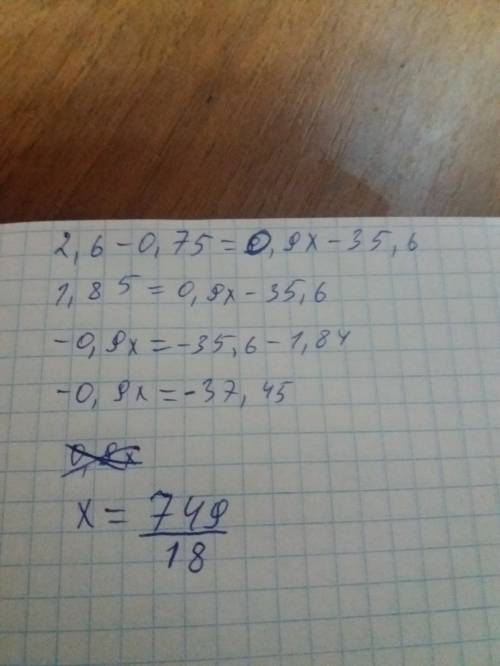 2,6-0,75=0,9x-35,6
1,85=0,9x-35,6
-0,9x=-35,6-1,84
-0,9x=-37,45
x=749/18